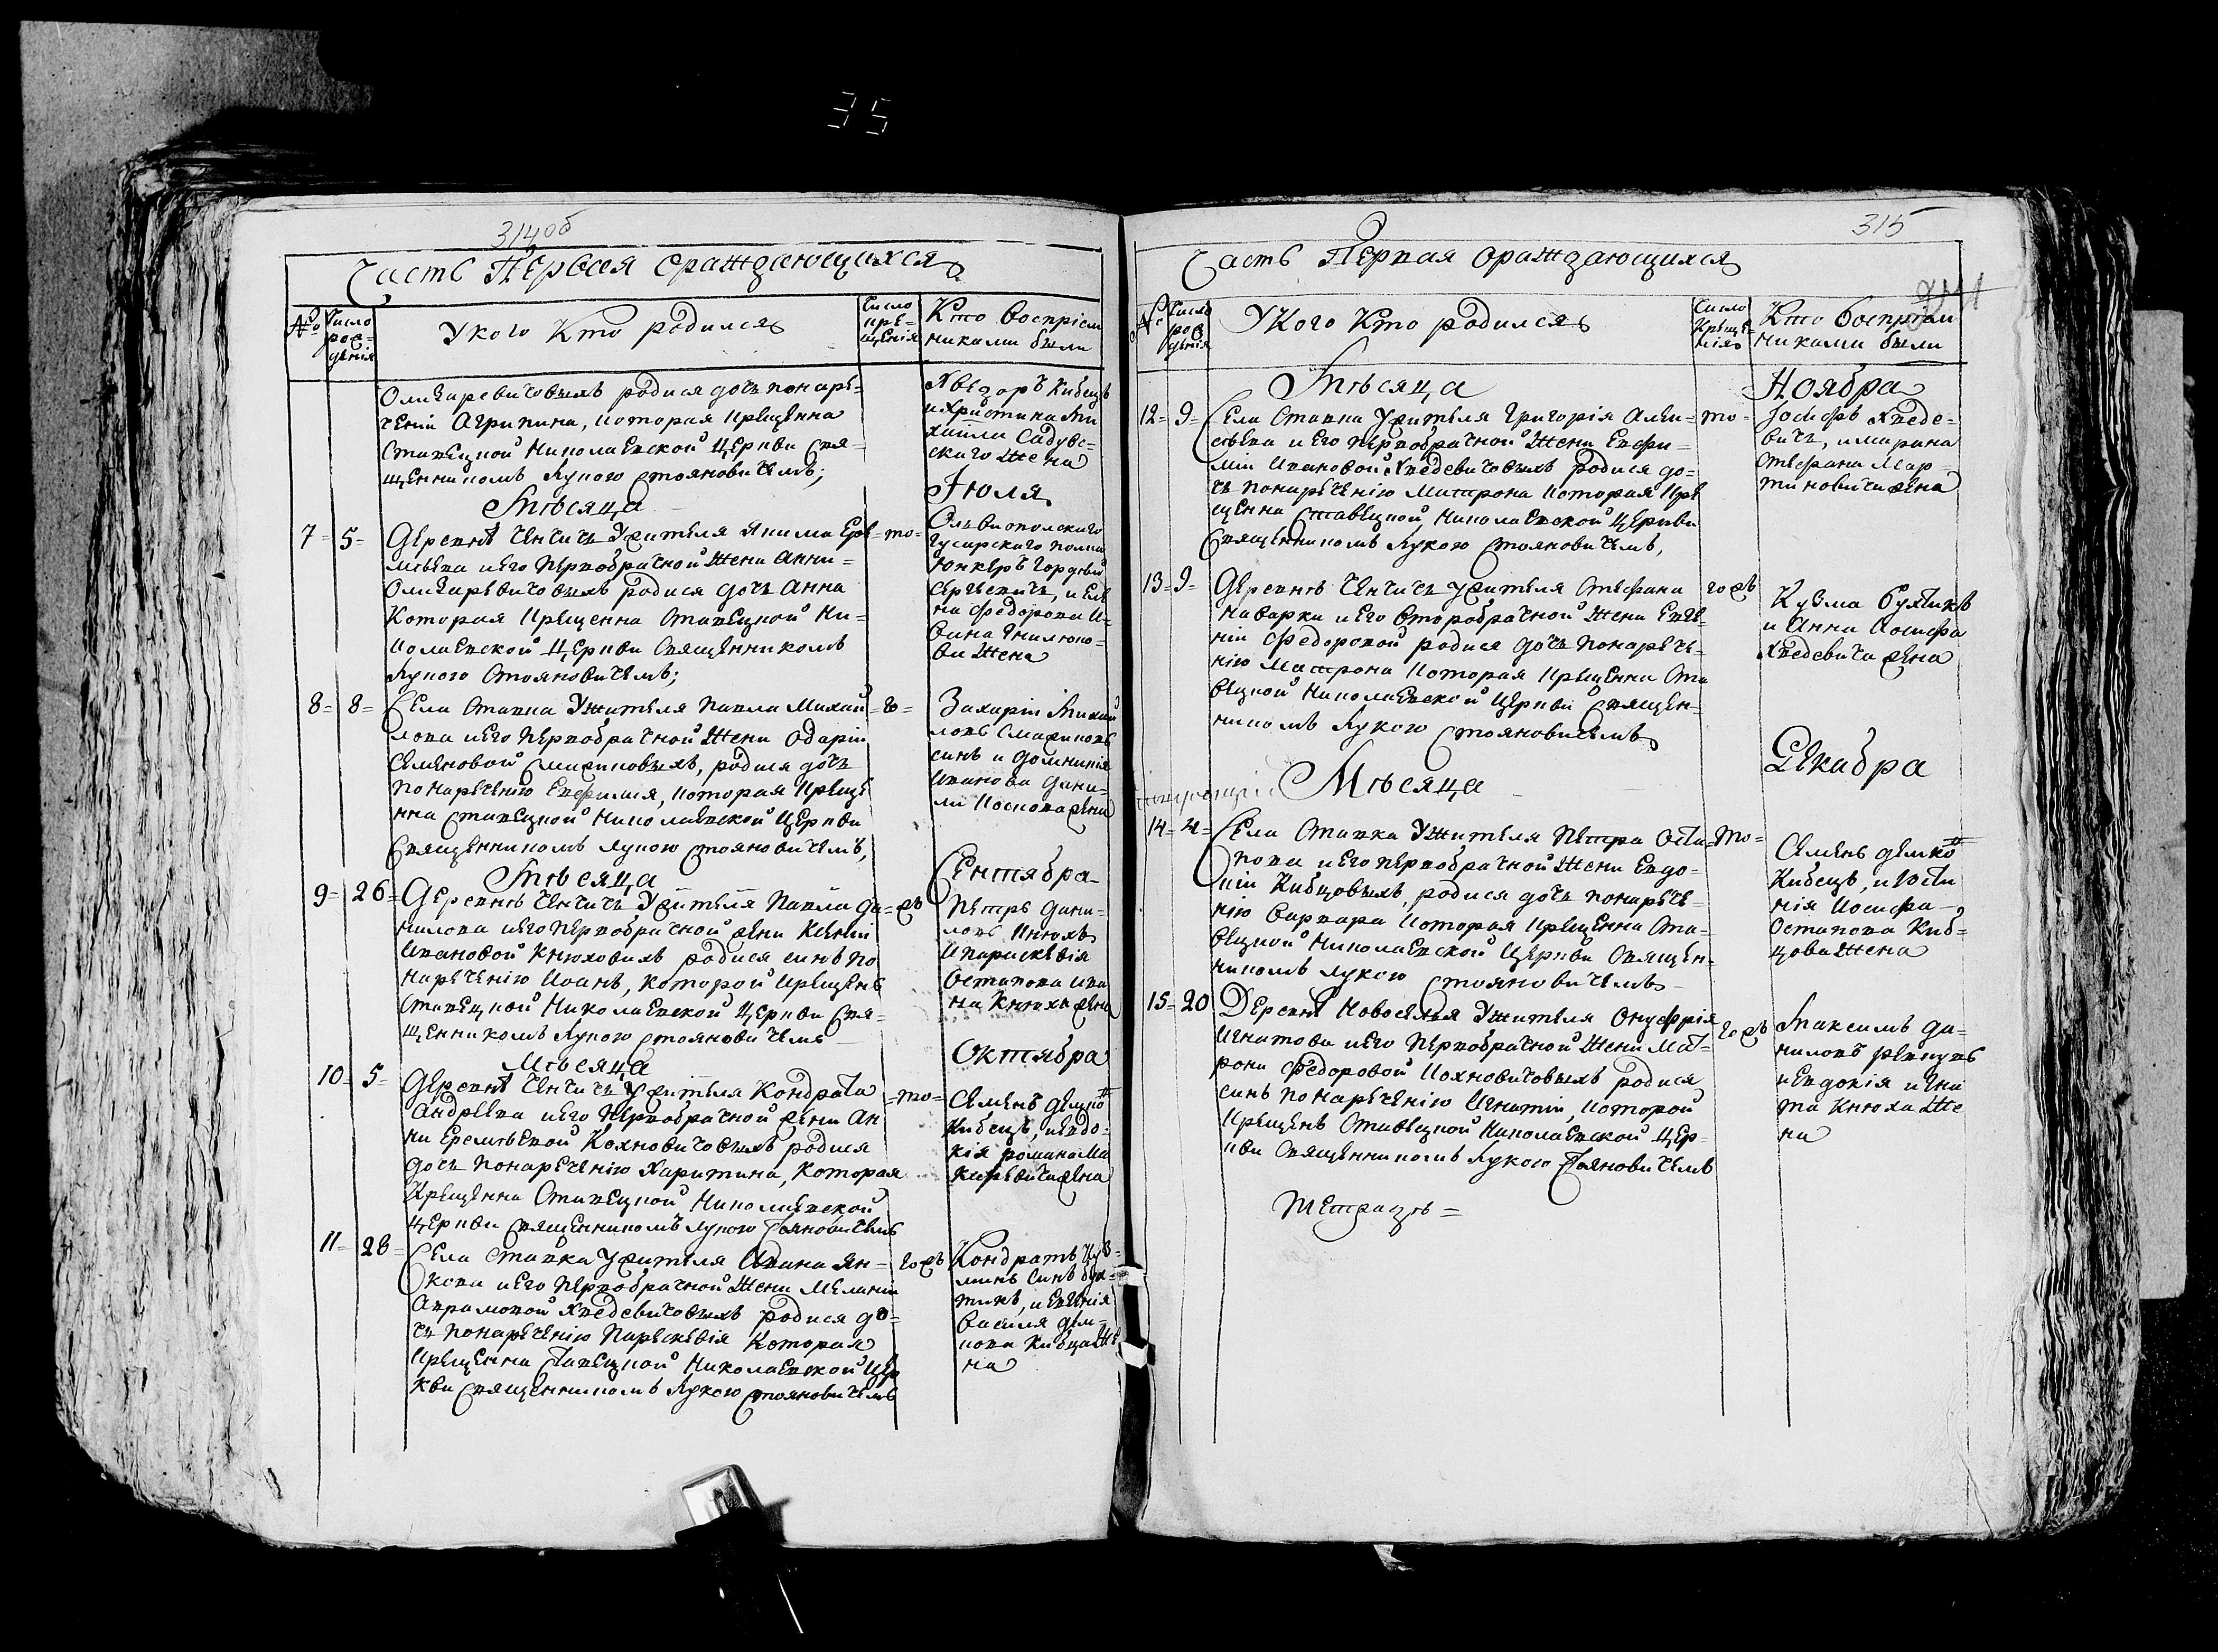 35
314об
Часть Первая ораждающихся
№ Число рождения
У кого Кто родился
Число крещения
Кто восприемниками были
родися дочь понаре-
чении Агрипина, которая крещенна
Ставецкой Николаевской Церкви Свя-
щенником Лукою Стояновичемъ;
Хведоръ Кибецъ
и Христина Ми
хаила Садовс-
скаго жена
Месяца
Июля
7 5 Деревне Ченчичъ ужителя Якима Ере-
меева и его первобрачной жени Анни
родися дочь Анна
Которая крещенна Ставецкой Ни-
колаевской Церкви Священникомъ
Лукою Стояновичемъ;
то
Ольвиополскаго
Гусарскаго полка
Юнкеръ Гордей
Сергеевичъ, и Еле
на Федорова И-
вана
ва жена
8 8 Села Ставка Ужителя Павла Михай-
лова и его первобрачной жени Одарии
Семеновой родися дочь
понаречению Евфимия, которая креще
нна Ставецкой Николаевской Церкви
Священникомъ Лукою Стояновичемъ,
Захарий Михай
ловъ
синъ и Домникия
Иванова Дани-
ла жена
Месяца
Сентября
9 26 Деревне Ченчичъ Ужителя Павла Да-
нилова и его первобрачной жени Ксении
Ивановой Кнюховихъ родися синъ по
наречению Иоанъ, которой крещенъ
Ставецкой Николаевской Церкви Свя-
щенникомъ Лукою Стояновичемъ
Петръ Дани-
ловъ Кнюхъ
и Параскевия
Остапова Ива
на Кнюха жена
Месяца
Октября
10 5 Деревне Ченчичъ Ужителя Кондрата
Андреева и его первобрачной жени Ан
ни Еремеевой Кохновичовыхъ родися
дочь понаречению Харитина, которая
Крещенна Ставецкой Николаевской
Церкви Священникомъ Лукою Стояновичемъ
то
Семенъ Демко
Кибецъ, и Евдо-
кия Романа Ма
каревича жена
11 28 Села Ставка Ужителя Ивана Ян-
кова и его первобрачной жени Мелании
Аврамовой Хведевичовыхъ родися до-
чь понаречению Параскевия Которая
крещенна Ставецкой Николаевской Цер
кви Священникомъ Лукою Стояновичемъ
гожъ
Кондратъ Куз-
минъ синъ Бух-
тикъ, и Евгения
Василя Дем-
кова Кибца же
на
315
Часть Первая ораждающихся
№ Число рождения
У Кого Кто родился
Число Крещения
Кто восприемниками были
Месяца
Ноября
12 9 Села Ставка Ужителя Григория Алек-
сеева и его первобрачной жени Евфи-
мии Ивановой Хведевичовыхъ родися до-
чь понаречению Матрона которая кре
щенна Ставецкой Николаевской Церкви
Священникомъ Лукою Стояновичемъ,
то
Иосифъ Хведе-
вичъ, и Марина
Стефана Мар-
тиновича жена
13 9 Деревне Ченчичъ ужителя Стефана
Наварки и его второбрачной жени Евге-
нии Федоровой родися дочь понарече-
нию Матрона которая крещенна Ста
вецкой Николаевской Церкви Священ-
никомъ Лукою Стояновичемъ
гожъ
Кузма Бухтикъ
и Анна Иосифа
Хведевича жена
Месяца
Декабра
14 4 Села Ставка Ужителя Петра Оста-
пова и его первобрачной жени Евдо-
кии Кибцовыхъ, родися дочь понарече-
нию Варвара которая крещенна Ста-
вецкой Николаевской Церкви Священ-
никомъ Лукою Стояновичемъ
то
Семенъ Демко
Кибецъ, и Юсти
ния Иосифа
Остапова Киб-
цова жена
15 20 Деревне Новоселья Ужителя Онуфрия
Игнатова и его первобрачной жени Мат-
рони Федоровой Кохновичовыхъ родися
синъ понаречению Игнатий, которой
крещенъ Ставецкой Николаевской Цер-
кви Священникомъ Лукою Стояновичемъ
гожъ
Максимъ Да-
ниловъ
и Евдокия Игна
та Кнюха же
на